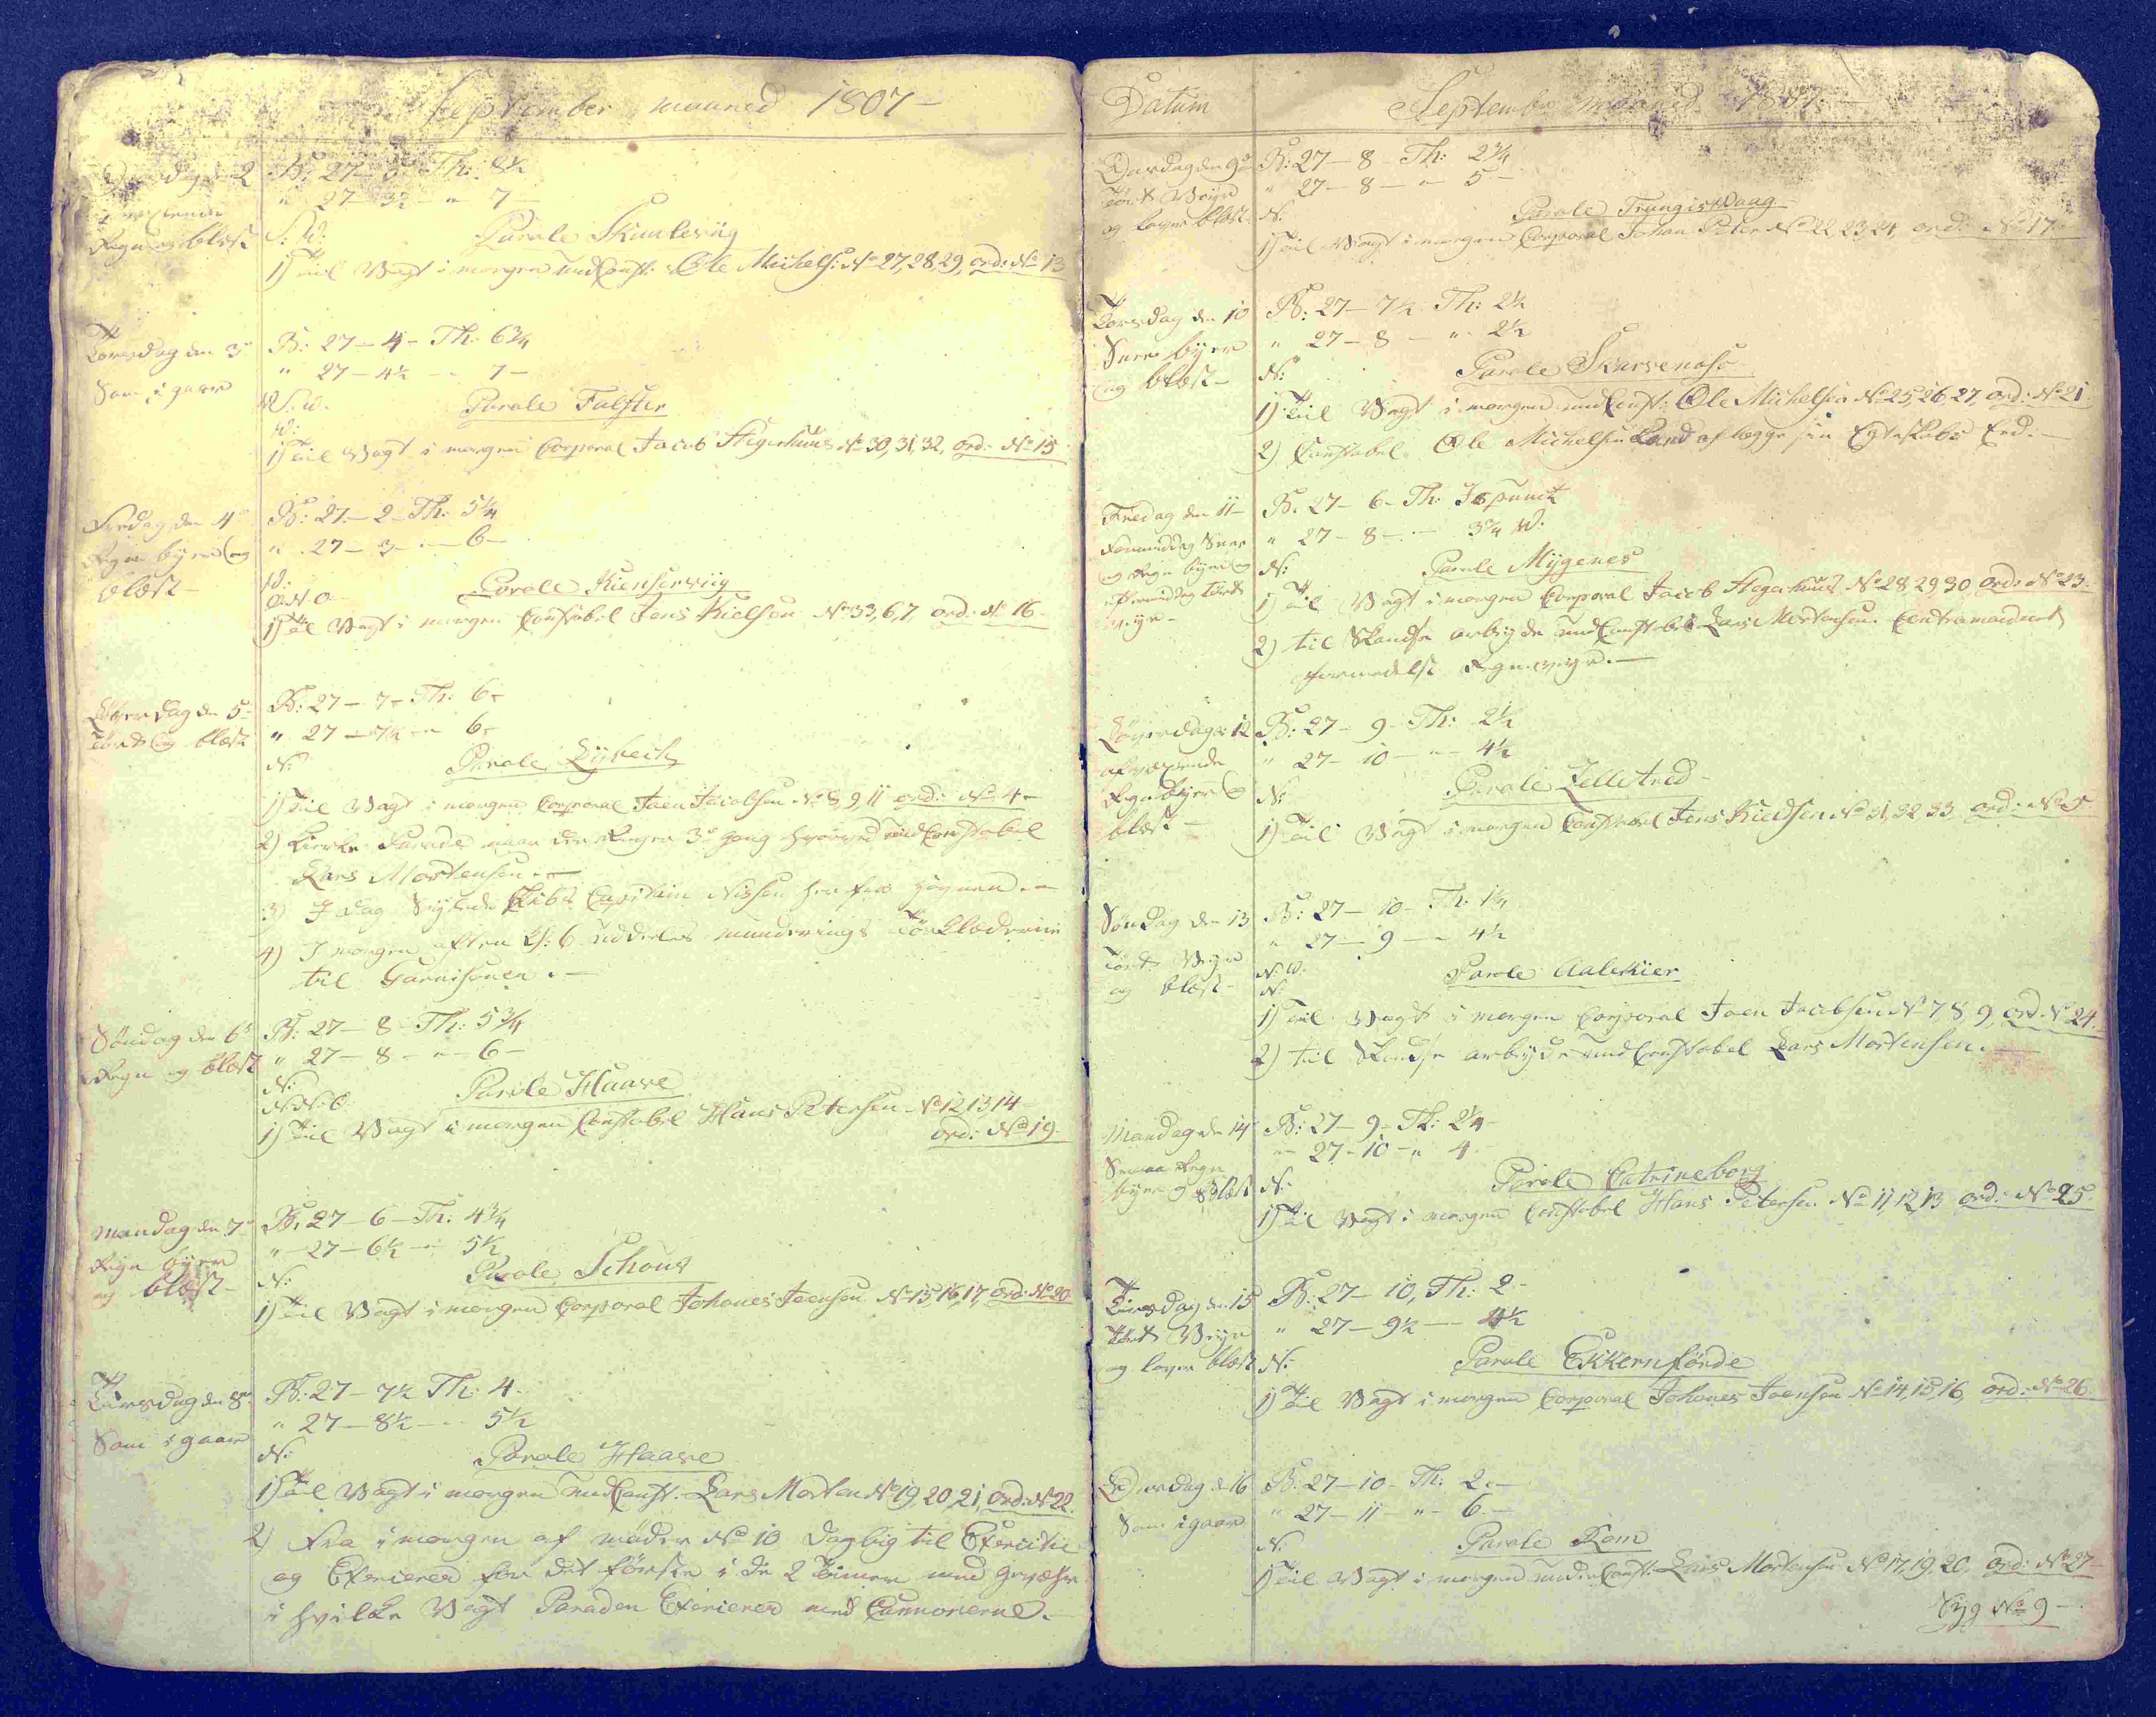 September maaned 1807 –
den 2
Regn og blæst
B: 27 – 3 – Th: 8½
" 27 – 3½ – " 7 –
S: W:
Parole Skaalevüg
1) Til Vagt i morgen und Const: Ole Michels: No 27, 28, 29, ord: No 13
Torsdag den 3de
Som i gaar
B: 27 – 4 – Th: 6¾
" 27 – 4½ – " 7 –
W.S.W.
W:
Parole Falster
1) Til Vagt i morgen Corporal Jacob Hegerhuus No 30, 31, 32, ord: No 15
Fredag den 4de
Regn byer og
blæst –
B: 27 – 2 – Th: 5¼
" 27 – 3 – " – 6 –
W:
O.N.O.
Parole Kienservüg
1) Til Vagt i morgen Constabel Jens Kielsen No 33, 6, 7, ord: No 16 –
Löverdag den 5te
Tört og blæst
B: 27 – 7 – Th: 6 –
" 27 – 7¼ – " 6 –
N:
Parole Lybech
1) Til Vagt i morgen Corporal Joen Jacobsen No 8, 9, 11 ord: No 4 –
2) Kirke Parade naar der Ringes 3de gang hvorved und Constabel
Lars Mortensen –
3) I Dag Seylede Skibs Capitain Nissen her fra Havnen –
4) I morgen aften Kl: 6 uddeles munderings
til Garnisonen. –
Söndag den 6te
Regn og blæst
B: 27 – 8 – Th: 5¾
" 27 – 8 – " – 6 –
N:
N.N.O.
Parole Haare
1) Til Vagt i morgen Constabel Hans Petersen No 12, 13, 14 –
ord: No 19.
Mandag den 7de
Regn byer
og blæst –
B: 27 – 6 – Th: 4¾
" – 27 – 6½ – " 5½
N:
Parole Schouv
1) Til Vagt i morgen Corporal Johanes Joensen No 15, 16, 17, ord: No 20
Tirsdag den 8de
Som i gaar
B: 27 – 7½ Th: 4 –
" 27 – 8½ – " 5½
N:
Parole Haare
1) Til Vagt i morgen und Const: Lars Morten No 19, 20, 21, ord: No 22.
2) Fra i morgen af möder No 10 Daglig til Exercitie
og Exercerer for det förste i de 2 Timer med gevæhr
i hvilke Vagt Paraden Exercerer med Cannonerne. –
Datum
September maaned 1807 –
Onsdag den 9de
Tört Veyr
og laver blæst –
B: 27 – 8 – Th: 2¾
" 27 – 8 – " – 5 –
N:
Parole Trangisvaag
1) Til Vagt i morgen Corporal Johan Peter No 22, 23, 24, ord: No 17 –
Torsdag den 10
Snee byer
og blæst –
B: 27 – 7½ Th: 2½
" 27 – 8 – " 2½
N:
Parole Skarsenass
1) Til Vagt i morgen und Const: Ole Michelsen No 25, 26, 27, ord: No 21
2) Constabel Ole Michelsen aflægge sin Egteskabs Eed. –
Fredag den 11 –
Formiddag Snee
og Regn byer og
eftermiddag tört
Veyr –
B: 27 – 6 – Th: Ispunct
" 27 – 8 – – 3¾ W.
N:
Parole Mÿgenes
1) Til Vagt i morgen Corporal Jacob Hegerhuus No 28, 29, 30 ord: No 23.
2) til Skandse arbeyde und Constabel Lars Mortensen. Contramanderet
formedelst Regn veyr. –
Löverdag d: 12
afvexlende
Regn byer og
blæst –
B: 27 – 9 – Th: 2½
" 27 – 10 – " – 4½
N:
Parole
1) Til Vagt i morgen Constabel Jens Kieldsen No 31, 32, 33 ord: No 5
Söndag den 13
Tört Veyr
og blæst –
B: 27 – 10 – Th: 1¼
" 27 – 9 – – 4½
N:W.
N:
Parole Aalekier
1) Til Vagt i morgen Corporal Joen Jacobsen No 7, 8, 9, ord. No 24.
2) til Skandse arbeyde und Constabel Lars Mortensen. –
Mandag den 14
Smaa Regn
byer og blæst
B: 27 – 9 – Th: 2¼ –
" – 27 – 10 – " 4 –
N:
Parole Catrineborg
1) Til Vagt i morgen Constabel Hans Petersen No 11, 12, 13 ord: No 25
Tirsdag den 15
Tört Veyr
og laver blæst
B: 27 – 10, Th: 2 –
" 27 – 9½ – – 4½
N:
Parole Ekkernförde
1) Til Vagt i morgen Corporal Johanes Joensen No 14, 15, 16, ord: No 26.
Onsdag d: 16
Som i gaar
B: 27 – 10 – Th: 2. –
" 27 – 11 – " – 6 –
N:
Parole Rom
1) Til Vagt i morgen under Const: Lars Mortensen No 17, 19, 20, ord: No 27 –
Syg No 9 –